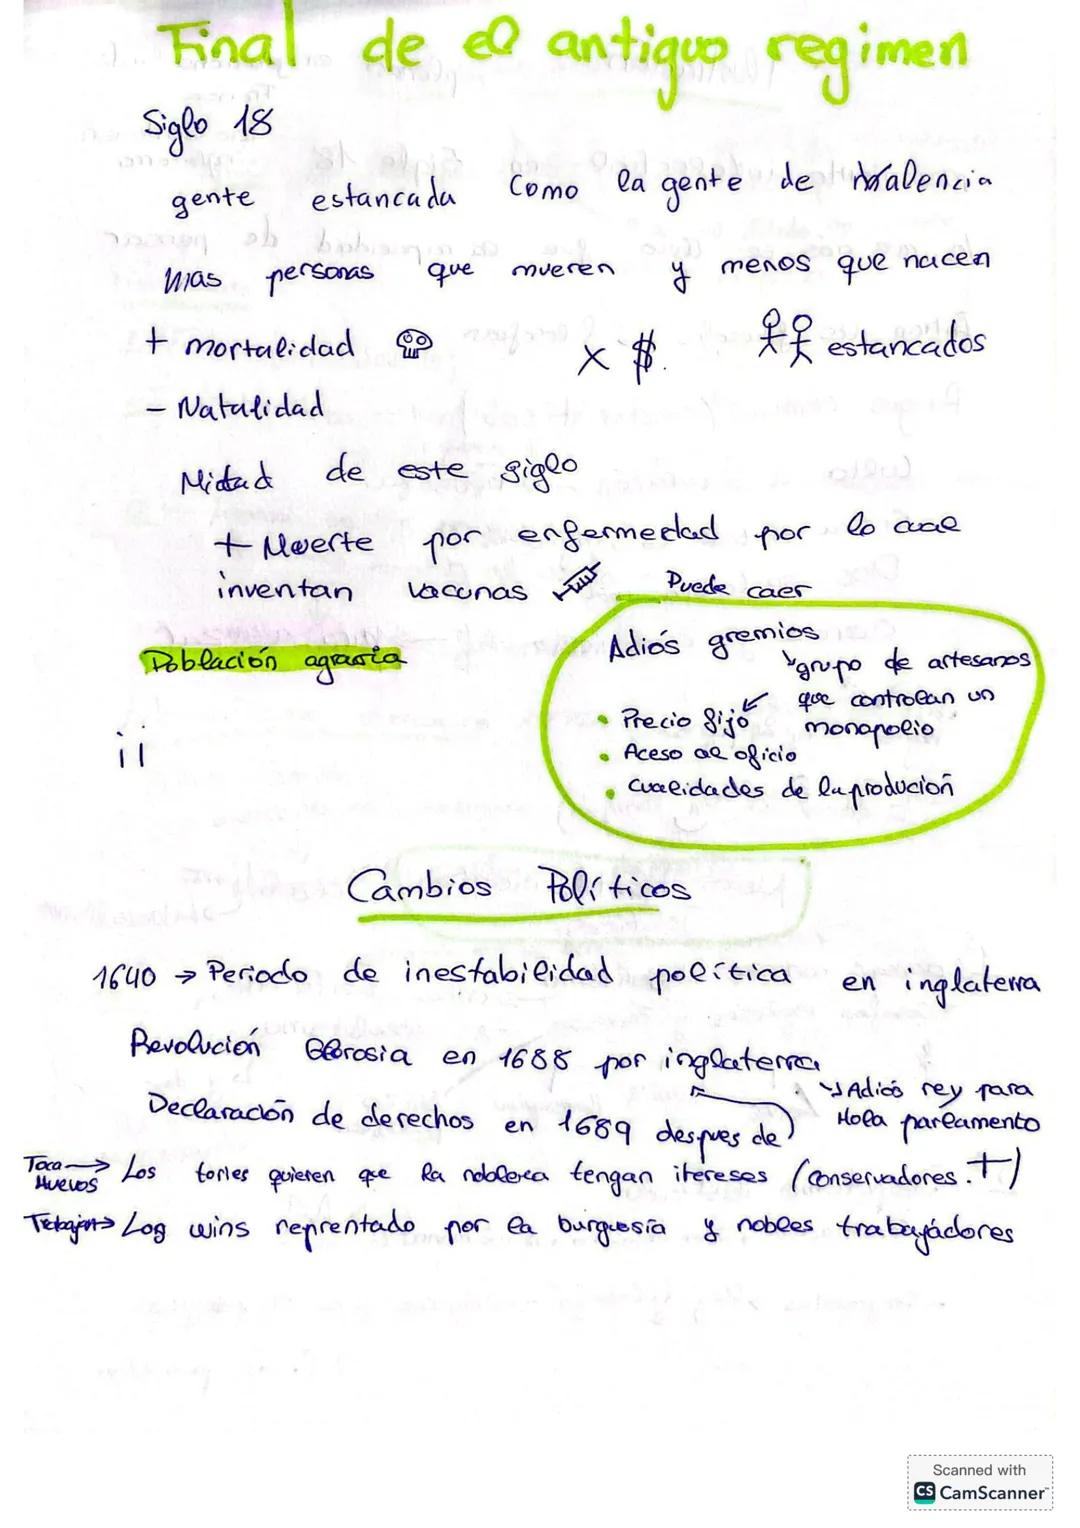 Final de el antiguo regimen
Siglo 18
gente estancada como la gente de Valencia
mas personas que mueren y menos que nacen
+ mortalidad x $. estancados
- Natalidad
Mitad de este siglo
+ Muerte por enfermedad por lo cual
inventan vacunas Puede caer
Población agraria
Adiós gremios
grupo de artesanos
que controlan un
monopolio
• Precio fijo
• Aceso al oficio
• cualidades de la produción
ii
Cambios Políticos
1640 → Periodo de inestabilidad política en inglaterra
Revolución Glorosia en 1688 por inglaterra
↳ Adiós rey para
Hola parlamento
Declaración de derechos en 1689 despues de
Toca Huevos → Los tories quieren que la nobleza tengan itereses (conservadores.+)
→ Los wins reprentado por la burguesia y nobles trabayádores
Scanned with
CS CamScanner